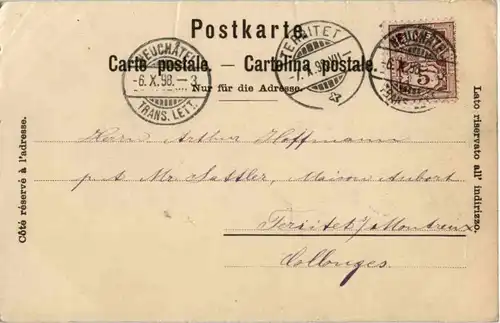 Postkarte.
Carte postale. — Cartolina postale.
Nur für die Adresse.
NEUCHÂTEL
-6.X.98.-3
TRANS. LETT.
TERRITET
-7.X.98.
NEUCHÂTEL
-6.X.98.
TRANS. LETT.
5
Côté réservé à l'adresse.
Lato riservato all' indirizzo.
Herrn Arthur Hoffmann
p. a. Mr. Sattler, Maison Aubort
Territet/Montreux
Collonges.